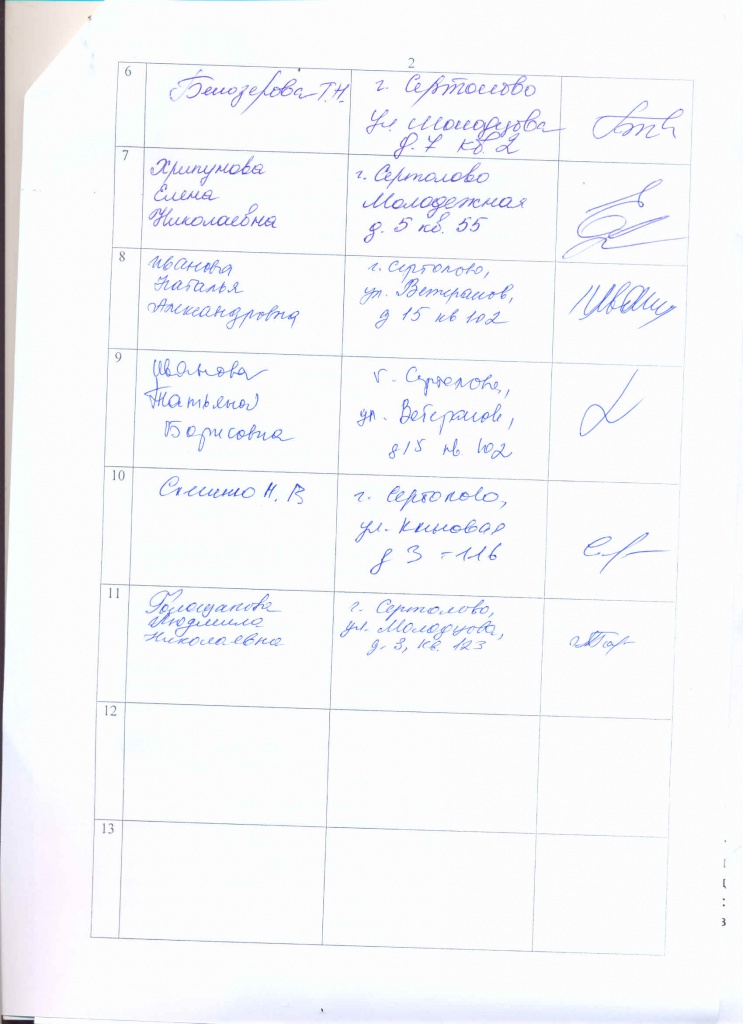 2
6
Белозерова Т.Н.
г. Сертолово
ул Молодцова
д. 7 кв. 2
7
Хрипунова
Елена
Николаевна
г. Сертолово
Молодежная
д. 5 кв. 55
8
Иванова
Наталья
Александровна
г. Сертолово,
ул. Ветеранов,
д 15 кв 102
9
Иванова
Татьяна
Борисовна
г. Сертолово,
ул. Ветеранов,
д 15 кв 102
10
Н. В
г. Сертолово,
ул. Кленовая
д 3 - 116
11
Голощапова
Людмила
Николаевна
г. Сертолово,
ул. Молодцова,
д. 3, кв. 123
12
13